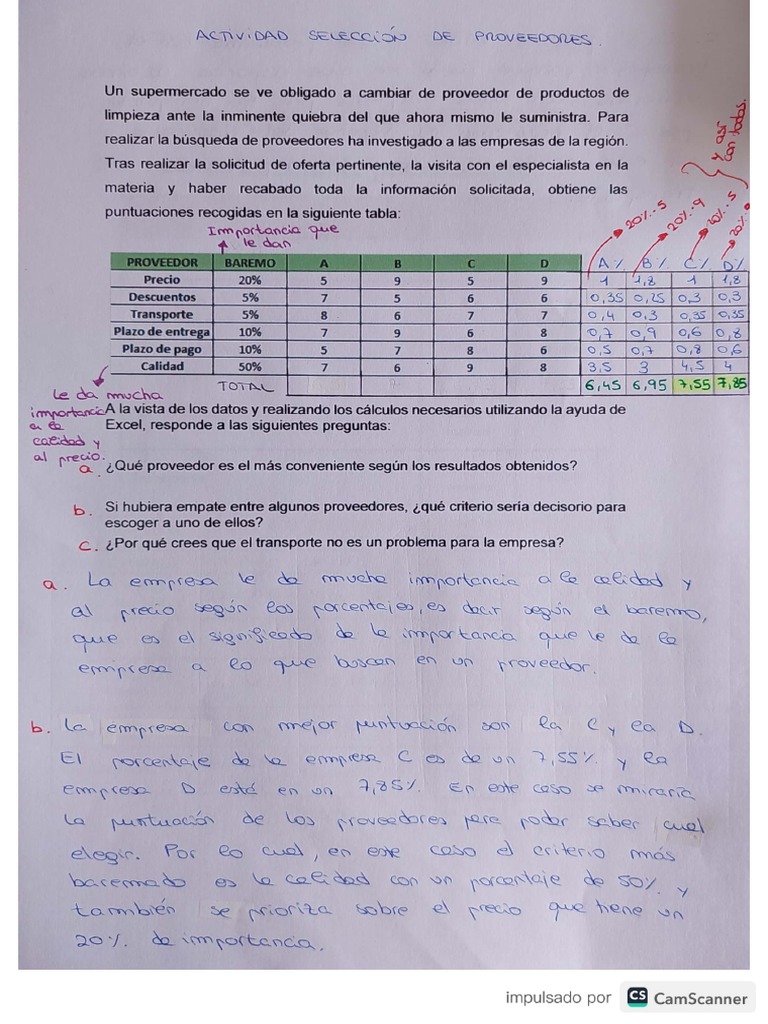 ACTIVIDAD SELECCIÓN DE PROVEEDORES.
Un supermercado se ve obligado a cambiar de proveedor de productos de
limpieza ante la inminente quiebra del que ahora mismo le suministra. Para
realizar la búsqueda de proveedores ha investigado a las empresas de la región.
Tras realizar la solicitud de oferta pertinente, la visita con el especialista en la
materia y haber recabado toda la información solicitada, obtiene las
puntuaciones recogidas en la siguiente tabla:
y así
con todos.
20%·5
20%·9
20%·5
20%·9
Importancia que
le dan
PROVEEDOR BAREMO A B C D A% B% C% D%
Precio 20% 5 9 5 9 1 1,8 1 1,8
Descuentos 5% 7 5 6 6 0,35 0,25 0,3 0,3
Transporte 5% 8 6 7 7 0,4 0,3 0,35 0,35
Plazo de entrega 10% 7 9 6 8 0,7 0,9 0,6 0,8
Plazo de pago 10% 5 7 8 6 0,5 0,7 0,8 0,6
Calidad 50% 7 6 9 8 3,5 3 4,5 4
TOTAL 6,45 6,95 7,55 7,85
le da mucha
importancia
a la
calidad y
al precio.
A la vista de los datos y realizando los cálculos necesarios utilizando la ayuda de
Excel, responde a las siguientes preguntas:
a. ¿Qué proveedor es el más conveniente según los resultados obtenidos?
b. Si hubiera empate entre algunos proveedores, ¿qué criterio sería decisorio para
escoger a uno de ellos?
c. ¿Por qué crees que el transporte no es un problema para la empresa?
a. La empresa le da mucha importancia a la calidad y
al precio según los porcentajes, es decir según el baremo,
que es el significado de la importancia que le da la
empresa a lo que buscan en un proveedor.
b. La empresa con mejor puntuación son la C y la D.
El porcentaje de la empresa C es de un 7,55% y la
empresa D está en un 7,85%. En este caso se miraría
la puntuación de los proveedores para poder saber cual
elegir. Por lo cual, en este caso el criterio más
baremado es la calidad con un porcentaje de 50% y
también se prioriza sobre el precio que tiene un
20% de importancia.
impulsado por CS CamScanner